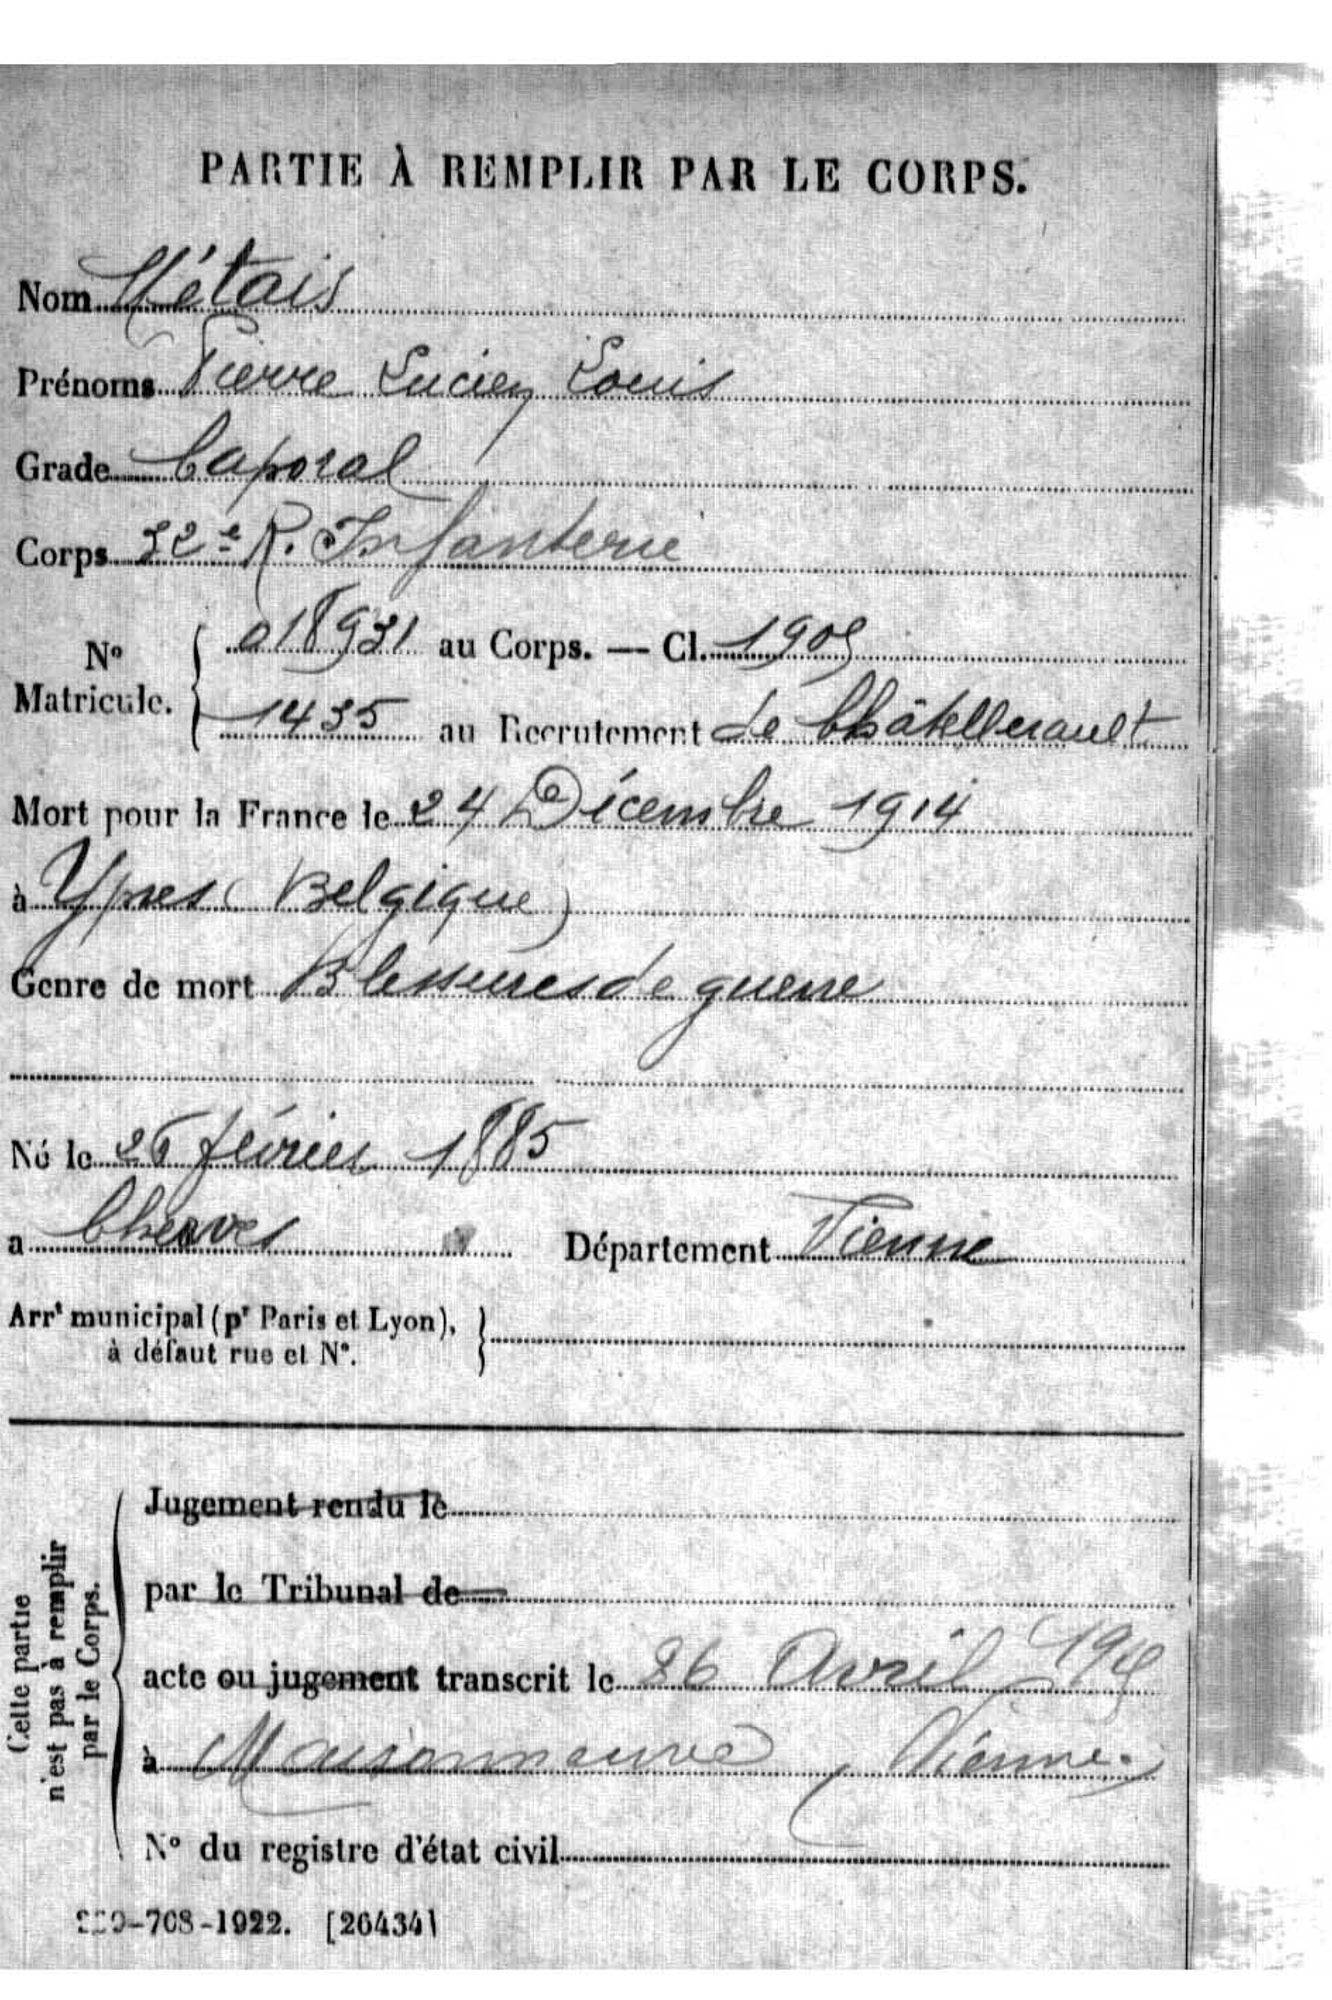 PARTIE À REMPLIR PAR LE CORPS.
Nom Métais
Prénoms Pierre Lucien Louis
Grade Caporal
Corps 32e R. Infanterie
No Matricule. { 018931 au Corps. — Cl. 1905
1435 au Recrutement de Châtellerault
Mort pour la France le 24 Décembre 1914
à Ypres (Belgique)
Genre de mort Blessures de guerre
Né le 28 février 1885
à Cherves Département Vienne
Arrt municipal (pr Paris et Lyon),
à défaut rue et No.
Cette partie
n'est pas à remplir
par le Corps.
Jugement rendu le
par le Tribunal de
acte ou jugement transcrit le 26 Avril 1915
à Maisonneuve (Vienne)
No du registre d'état civil
-708-1922. [26434]